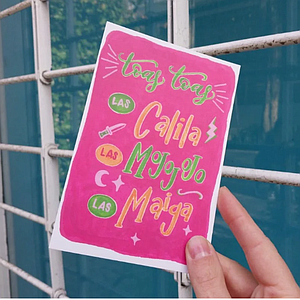 toas toas
LAS
Calila
LAS
Moyoyo
LAS
Maiga